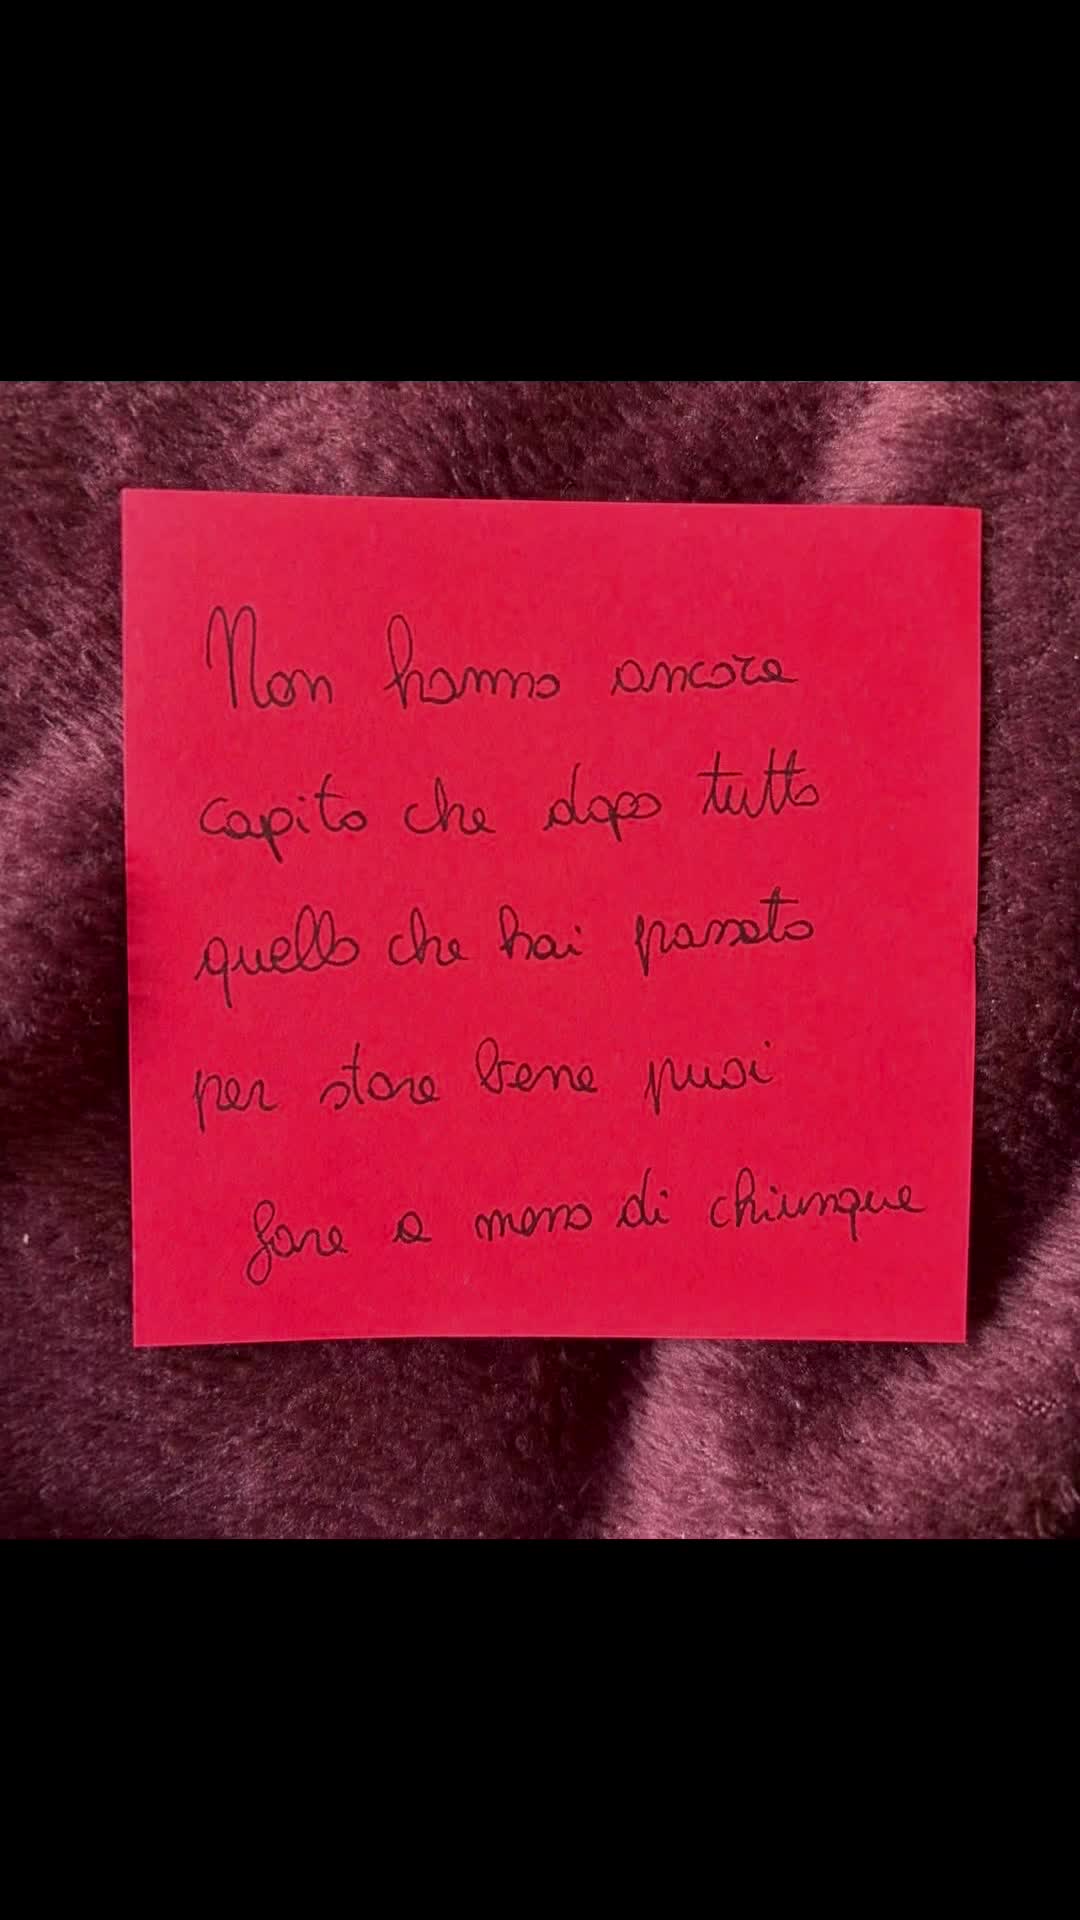 Non hanno ancora
capito che dopo tutto
quello che hai passato
per stare bene puoi
fare a meno di chiunque